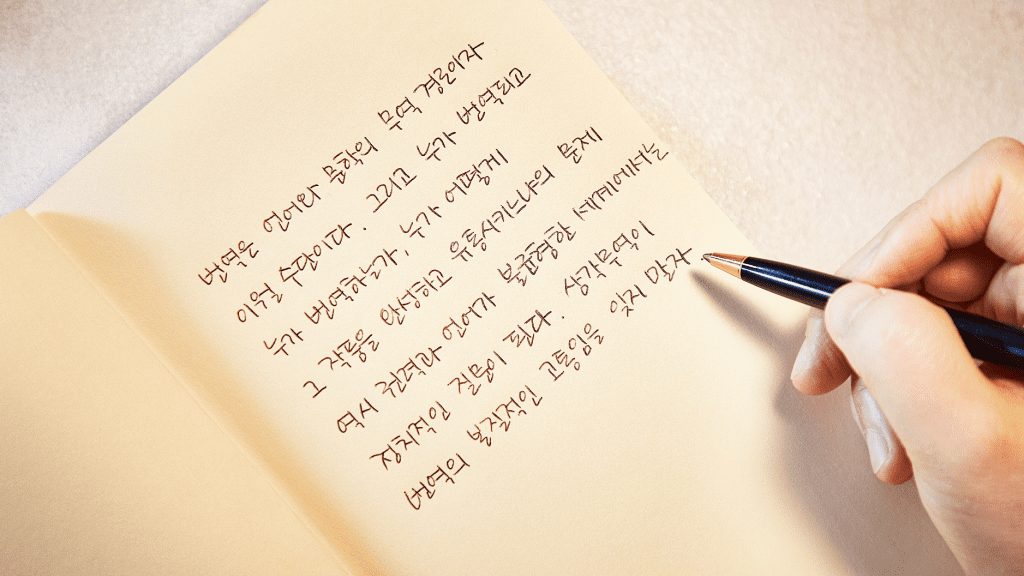 번역은 언어와 문학의 무역 경로이자
이월 수단이다. 그리고 누가 번역되고
누가 번역하는가, 누가 어떻게
그 작품을 완성하고 유통시키느냐의 문제
역시 권력과 언어가 불균형한 세계에서는
정치적인 질문이 된다. 삼각무역이
번역의 본질적인 고통임을 잊지 말자